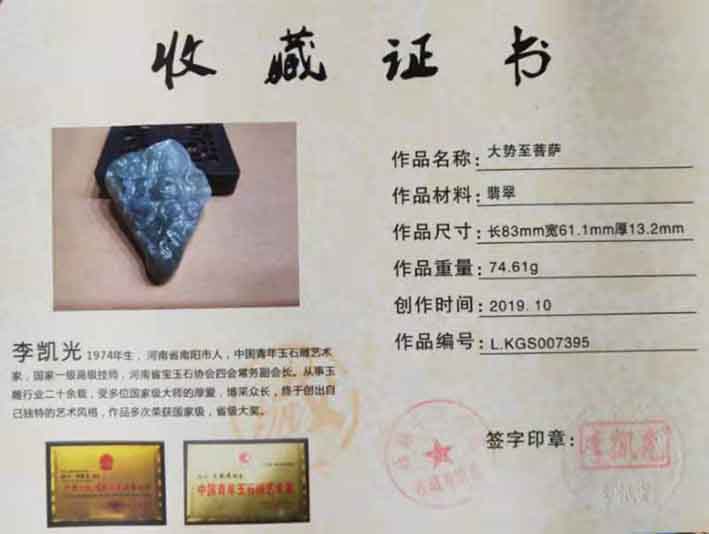 收藏证书
作品名称：大势至菩萨
作品材料：翡翠
作品尺寸：长83mm宽61.1mm厚13.2mm
作品重量：74.61g
创作时间：2019.10
作品编号：L.KGS007395
李凯光 1974年生，河南省南阳市人，中国青年玉石雕艺术
家，国家一级高级技师，河南省宝玉石协会四会常务副会长。从事玉
雕行业二十余载，受多位国家级大师的厚爱，博采众长，终于创出自
己独特的艺术风格，作品多次荣获国家级，省级大奖。
中国青年玉石雕艺术家
签字印章：
李凯光